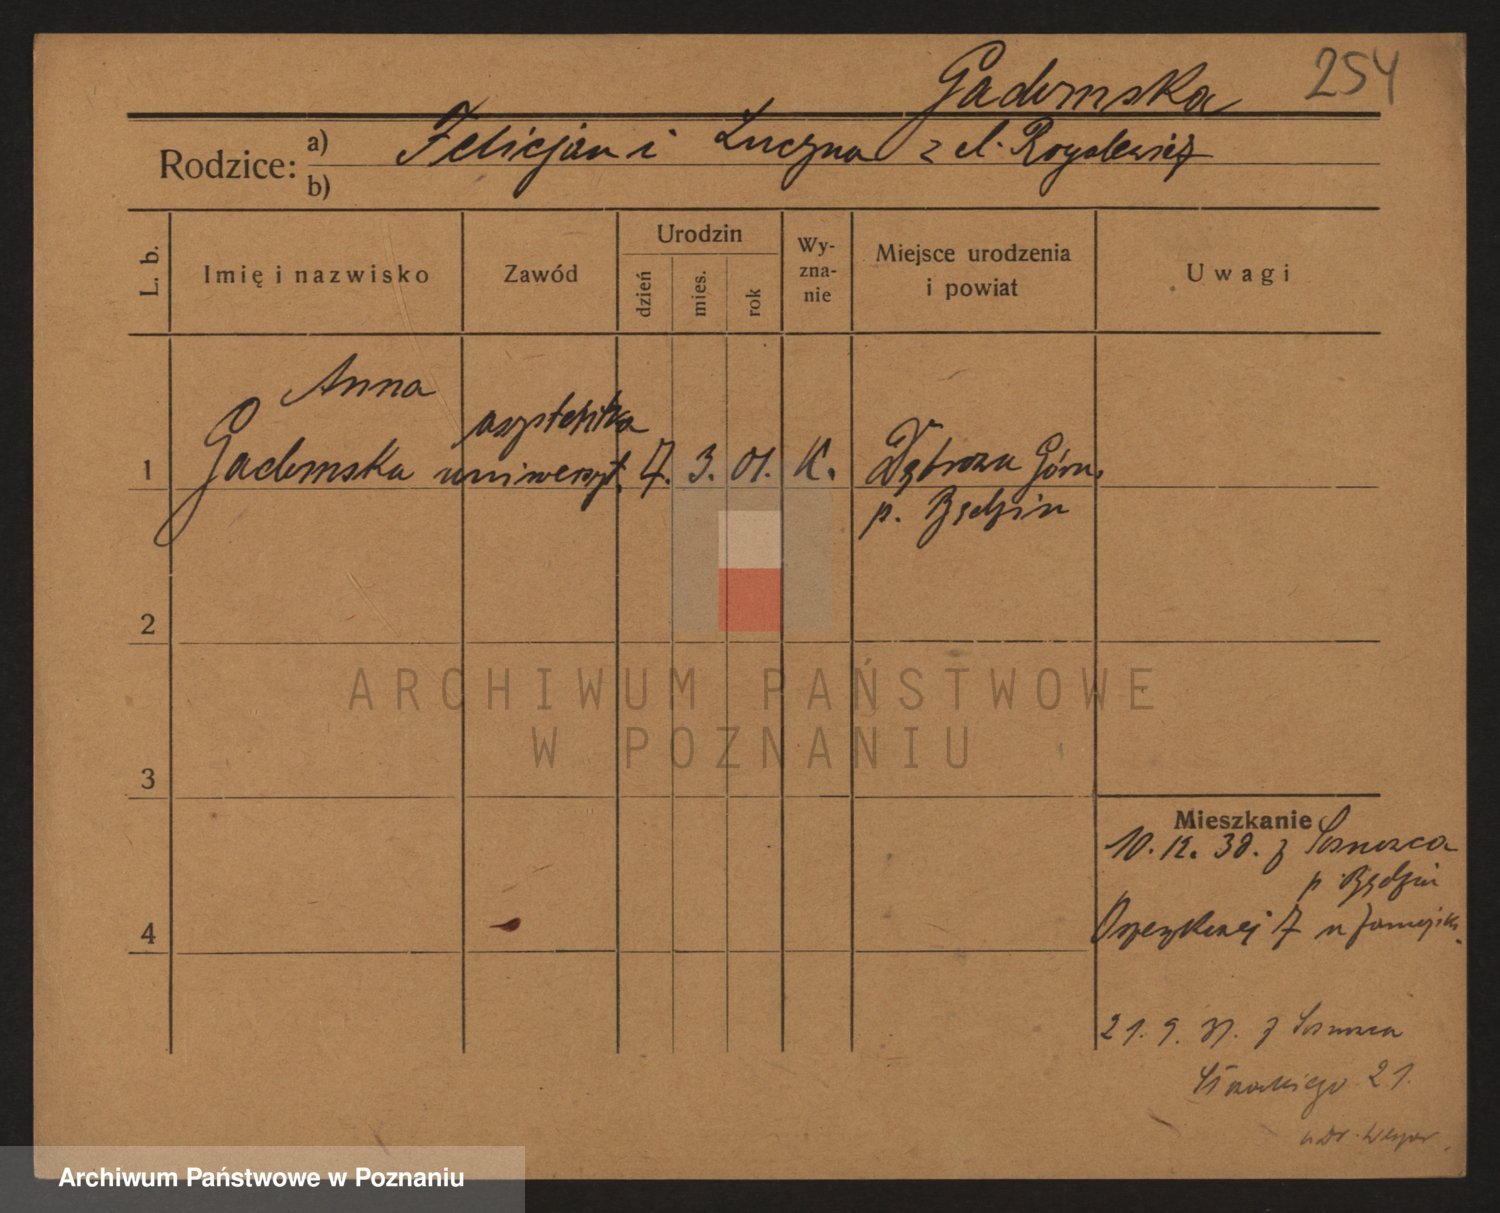 Gadomska 254
Rodzice: a) Felicjan i Luczyna z d. Rogalewicz
b)
L. b. Imię i nazwisko Zawód Urodzin dzień mies. rok Wy-zna-nie Miejsce urodzenia i powiat Uwagi
Anna
asystentka
1 Gadomska uniwersyt. 7. 3. 01. K. Dąbrowa Górn.
p. Będzin
2
ARCHIWUM PAŃSTWOWE
W POZNANIU
3
Mieszkanie
10. 12. 38. z Sosnowca
p. Będzin
4
7
21. 9. z Sosnowca
21.
u Dr.
Archiwum Państwowe w Poznaniu